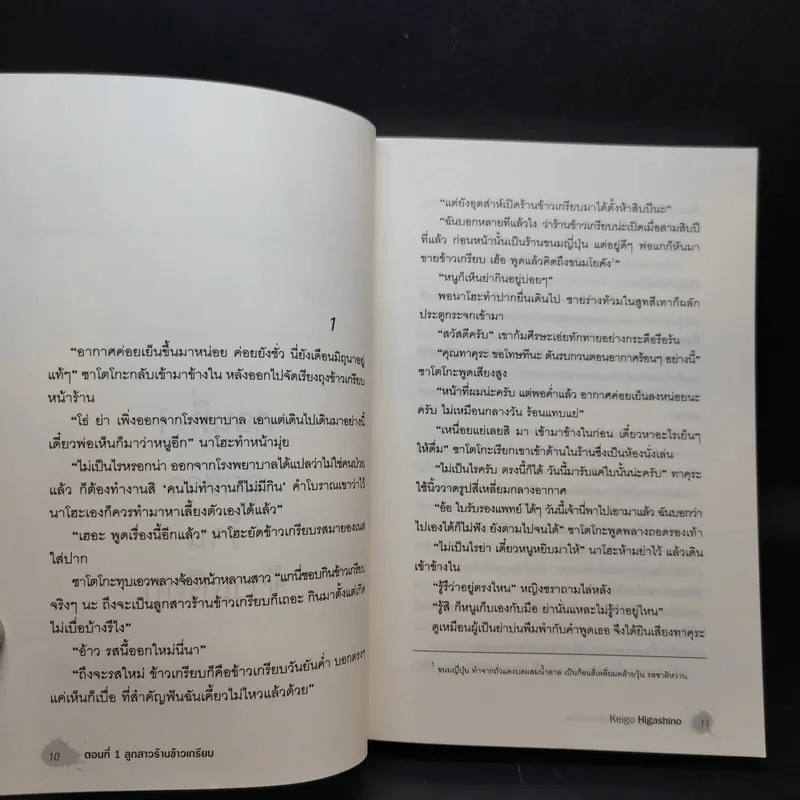 1
“อากาศค่อยเย็นขึ้นมาหน่อย ค่อยยังชั่ว นี่ยังเดือนมิถุนาอยู่
แท้ๆ” ซาโตโกะกลับเข้ามาข้างใน หลังออกไปจัดเรียงถุงข้าวเกรียบ
หน้าร้าน
“โธ่ ย่า เพิ่งออกจากโรงพยาบาล เอาแต่เดินไปเดินมาอย่างนี้
เดี๋ยวพ่อเห็นก็มาว่าหนูอีก” นาโฮะทำหน้ามุ่ย
“ไม่เป็นไรหรอกน่า ออกจากโรงพยาบาลได้แปลว่าไม่ใช่คนป่วย
แล้ว ก็ต้องทำงานสิ ‘คนไม่ทำงานก็ไม่มีกิน’ คำโบราณเขาว่าไว้
นาโฮะเองก็ควรทำมาหาเลี้ยงตัวเองได้แล้ว”
“เฮอะ พูดเรื่องนี้อีกแล้ว” นาโฮะยัดข้าวเกรียบรสมายองเนส
ใส่ปาก
ซาโตโกะทุบเอวพลางจ้องหน้าหลานสาว “แกนี่ชอบกินข้าวเกรียบ
จริงๆ นะ ถึงจะเป็นลูกสาวร้านข้าวเกรียบก็เถอะ กินมาตั้งแต่เกิด
ไม่เบื่อบ้างรึไง”
“อ้าว รสนี้ออกใหม่นี่นา”
“ถึงจะรสใหม่ ข้าวเกรียบก็คือข้าวเกรียบวันยันค่ำ บอกตรงๆ
แค่เห็นก็เบื่อ ที่สำคัญฟันฉันเคี้ยวไม่ไหวแล้วด้วย”
10 ตอนที่ 1 ลูกสาวร้านข้าวเกรียบ
“แต่ยังอุตส่าห์เปิดร้านข้าวเกรียบมาได้ตั้งห้าสิบปีนะ”
“ฉันบอกหลายทีแล้วไง ว่าร้านข้าวเกรียบน่ะเปิดเมื่อสามสิบปี
ที่แล้ว ก่อนหน้านั้นเป็นร้านขนมญี่ปุ่น แต่อยู่ดีๆ พ่อแกก็หันมา
ขายข้าวเกรียบ เฮ้อ พูดแล้วคิดถึงขนมโยคัง¹”
“หนูก็เห็นย่ากินอยู่บ่อยๆ”
พอนาโฮะทำปากยื่นเดินไป ชายร่างท้วมในสูทสีเทาก็ผลัก
ประตูกระจกเข้ามา
“สวัสดีครับ” เขาก้มศีรษะเอ่ยทักทายอย่างกระตือรือร้น
“คุณทาคุระ ขอโทษทีนะ ดันรบกวนตอนอากาศร้อนๆ อย่างนี้”
ซาโตโกะพูดเสียงสูง
“หน้าที่ผมน่ะครับ แต่พอค่ำแล้ว อากาศค่อยเย็นลงหน่อยนะ
ครับ ไม่เหมือนกลางวัน ร้อนแทบแย่”
“เหนื่อยแย่เลยสิ มา เข้ามาข้างในก่อน เดี๋ยวหาอะไรเย็นๆ
ให้ดื่ม” ซาโตโกะเรียกเขาเข้าด้านในร้านซึ่งเป็นห้องนั่งเล่น
“ไม่เป็นไรครับ ตรงนี้ก็ได้ วันนี้มารับแค่ใบนั้นน่ะครับ” ทาคุระ
ใช้นิ้ววาดรูปสี่เหลี่ยมกลางอากาศ
“อ้อ ใบรับรองแพทย์ ได้ๆ วันนี้เจ้านี่พาไปเอามาแล้ว ฉันบอกว่า
ไปเองได้ก็ไม่ฟัง ยังตามไปจนได้” ซาโตโกะพูดพลางถอดรองเท้า
“ไม่เป็นไรย่า เดี๋ยวหนูหยิบมาให้” นาโฮะห้ามย่าไว้ แล้วเดิน
เข้าข้างใน
“รู้รึว่าอยู่ตรงไหน” หญิงชราถามไล่หลัง
“รู้สิ ก็หนูเก็บเองกับมือ ย่านั่นแหละไม่รู้ว่าอยู่ไหน”
ดูเหมือนผู้เป็นย่าบ่นพึมพำกับคำพูดเธอ จึงได้ยินเสียงทาคุระ
¹ ขนมญี่ปุ่น ทำจากถั่วแดงบดผสมน้ำตาล เป็นก้อนสี่เหลี่ยมคล้ายวุ้น รสชาติหวาน
Keigo Higashino 11